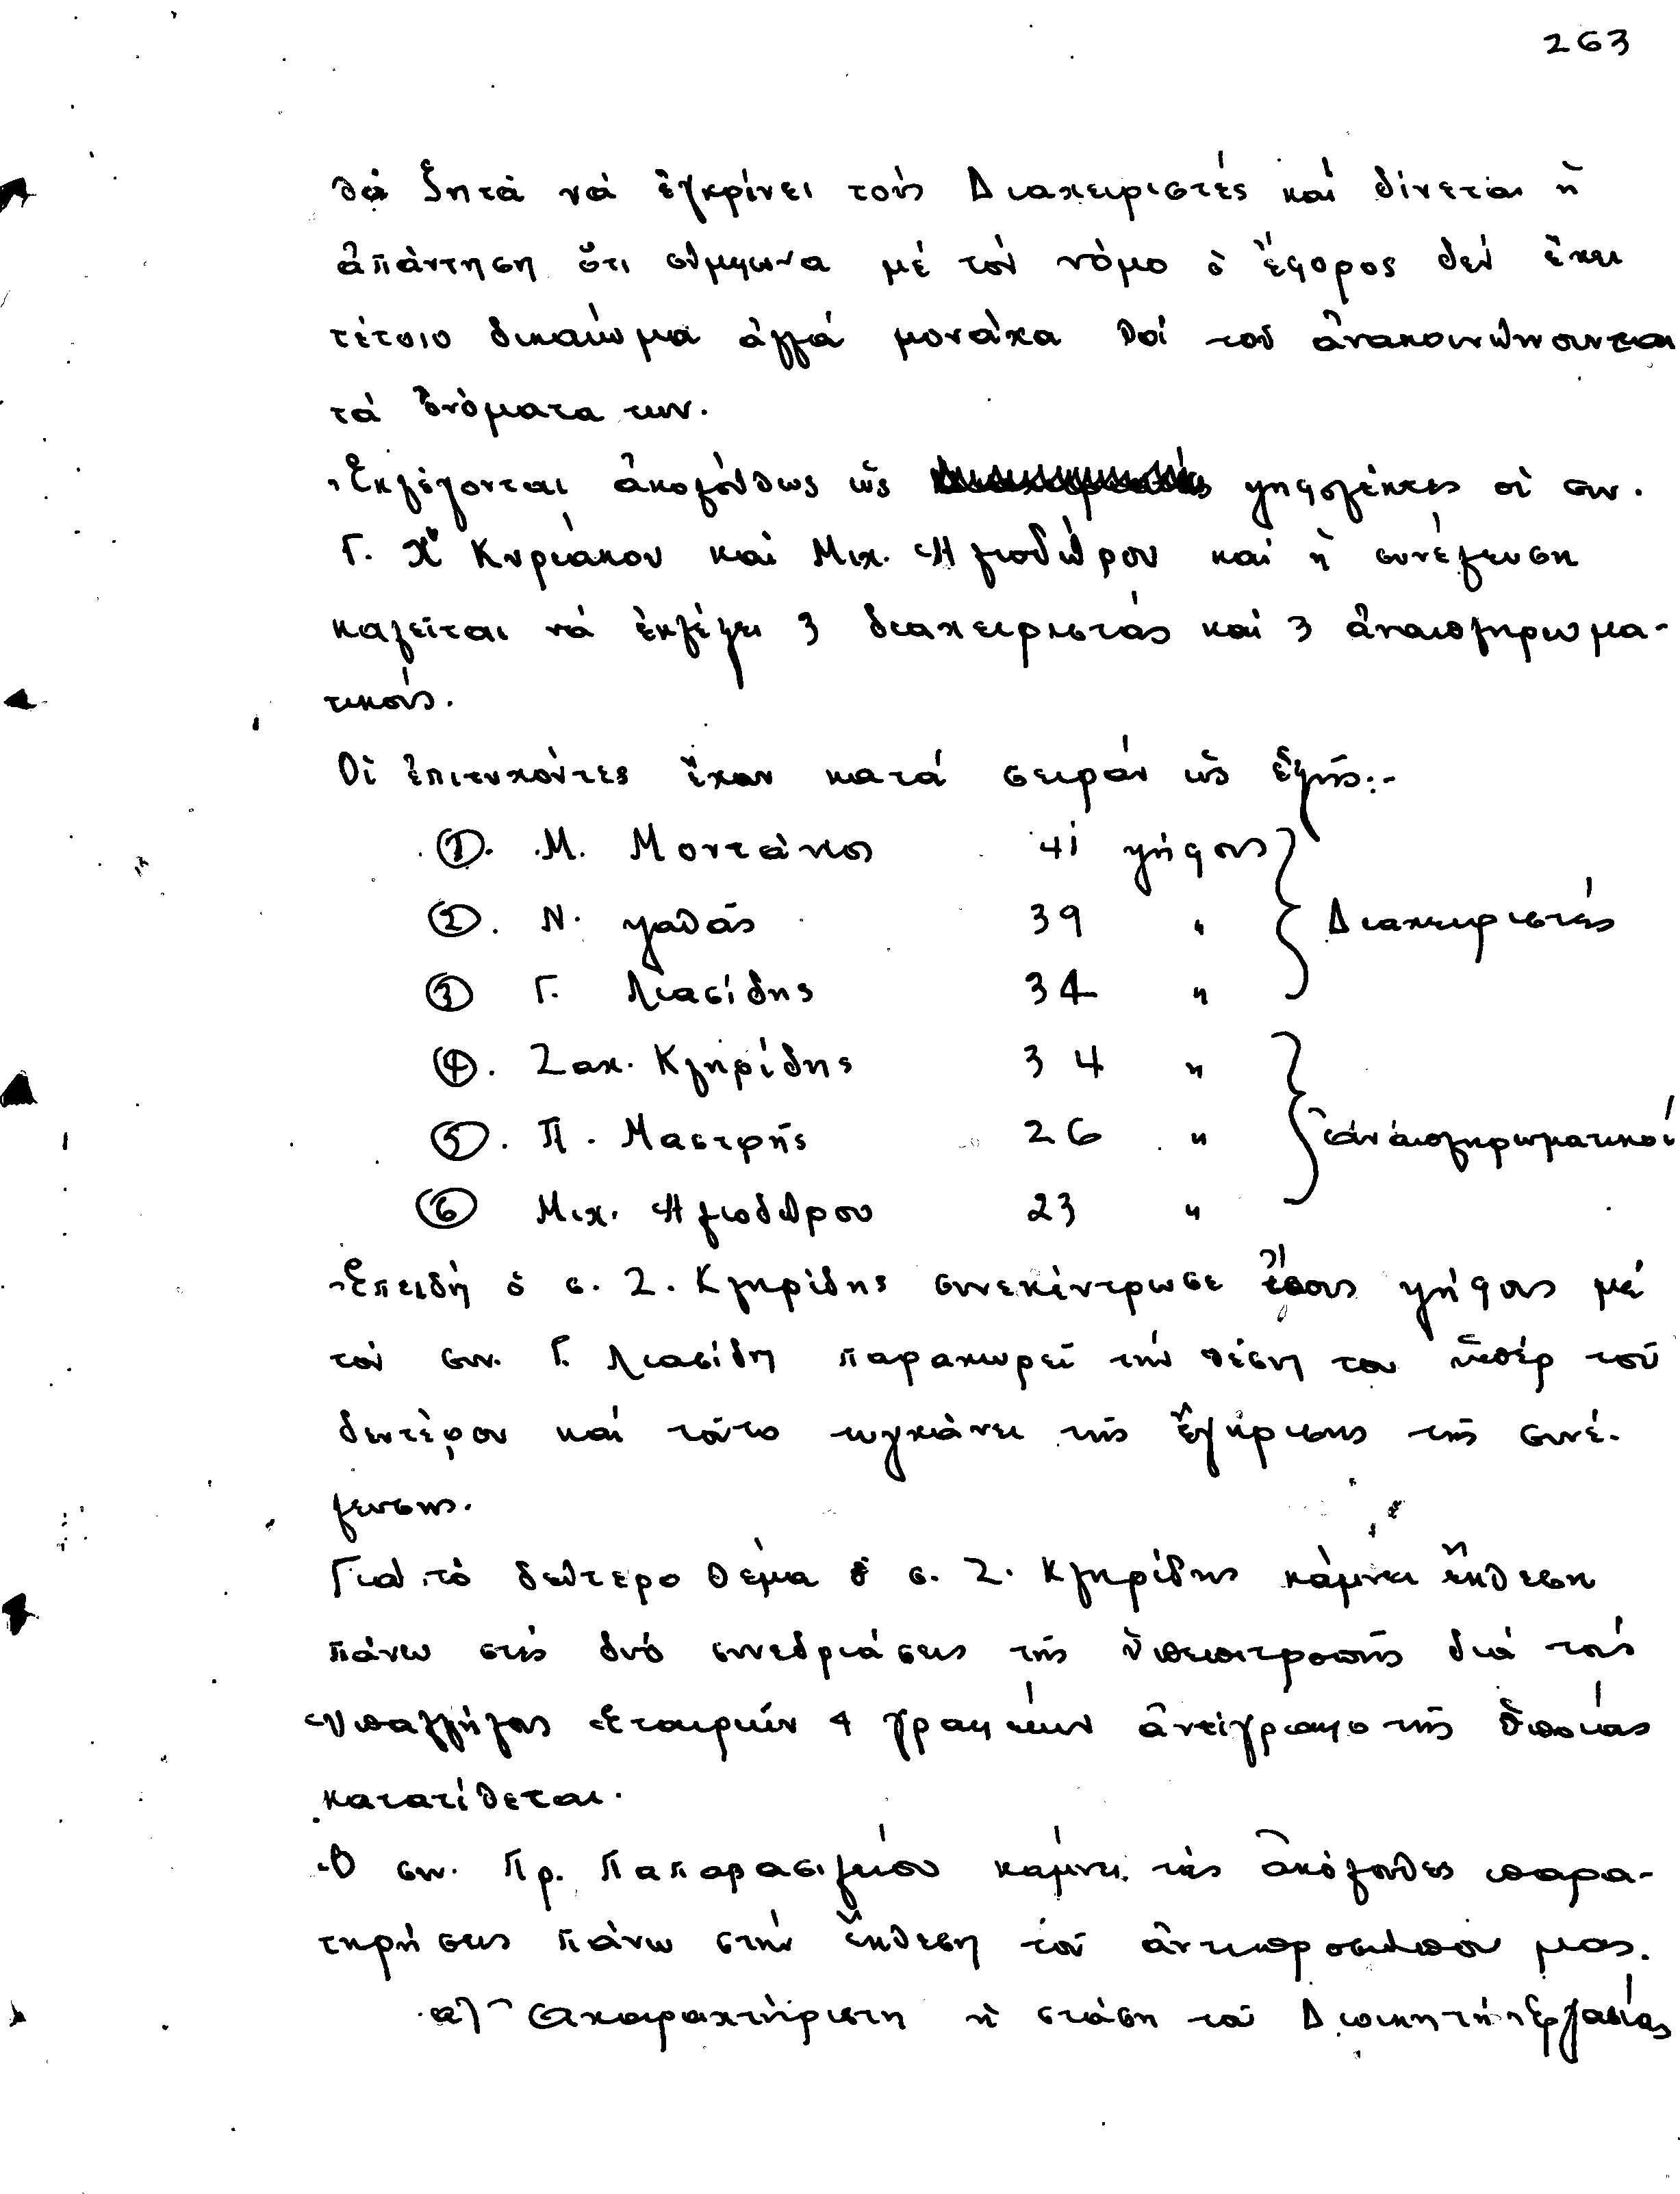 263
θά ζητά νά ἐγκρίνει τούς Διαχειριστές καί δίνεται ἡ
ἀπάντηση ὅτι σύμφωνα μέ τόν νόμο ὁ ἔφορος δέν ἔχει
τέτοιο δικαίωμα ἀλλά μονάχα θά τοῦ ἀνακοινώνουνται
τά ὀνόματα των.
Ἐκλέγονται ἀκολούθως ὡς ψηφολέκτες οἱ συν.
Γ. Χ" Κυριάκου καί Μιχ. Ἡλιοδώρου καί ἡ συνέλευση
καλεῖται νά ἐκλέξει 3 διαχειριστάς καί 3 ἀναπληρωμα-
τικούς.
Οἱ ἐπιτυχόντες ἔχουν κατά σειράν ὡς ἑξῆς:-
1. Μ. Μοντάνιος 41 ψήφους } Διαχειριστές
2. Ν. Ψαθᾶς 39 "
3 Γ. Λιασίδης 34 "
4. Ζαχ. Κληρίδης 34 " } ἀναπληρωματικοί
5. Π. Μαστρῆς 26 "
6 Μιχ. Ἡλιοδώρου 23 "
Ἐπειδή ὁ σ. Ζ. Κληρίδης συνεκέντρωσε ἴσους ψήφους μέ
τόν συν. Γ. Λιασίδη παραχωρεῖ τήν θέση του ὑπέρ τοῦ
δευτέρου καί τοῦτο τυγχάνει τῆς ἔγκρισης τῆς συνέ-
λευσης.
Γιά τό δεύτερο θέμα ὁ σ. Ζ. Κληρίδης κάμνει ἔκθεση
πάνω στίς δυό συνεδριάσεις τῆς ὑπεπιτροπῆς διά τούς
Ὑπαλλήλους Ἑταιριῶν & γραφείων ἀντίγραφο τῆς ὁποίας
κατατίθεται.
Ὁ συν. Πρ. Παπαβασιλείου κάμνει τές ἀκόλουθες παρα-
τηρήσεις πάνω στήν ἔκθεση τοῦ ἀντιπροσώπου μας.
α) Ἀχαρακτήριστη ἡ στάση τοῦ Διοικητῆ Ἐργασίας